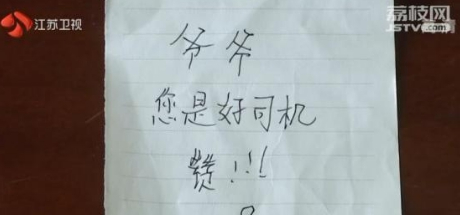 江苏卫视
荔枝网
JSTV.com
爷爷
您是好司机
赞!!!